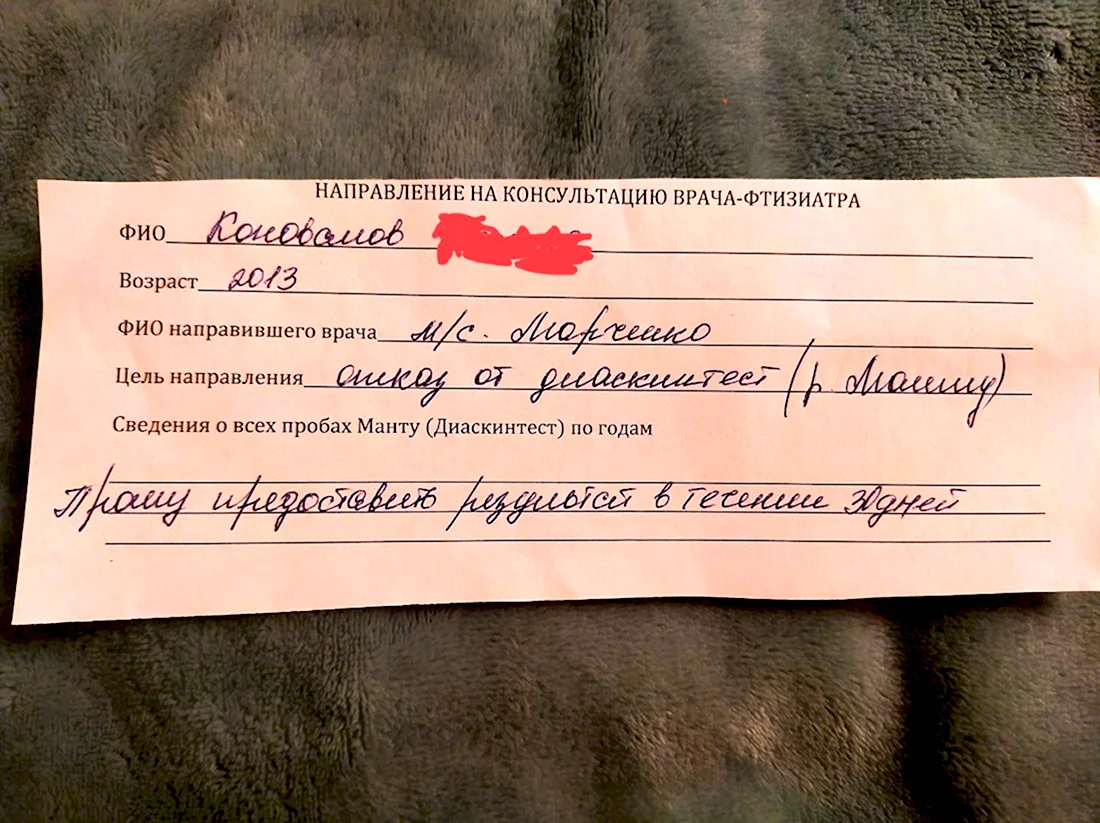 НАПРАВЛЕНИЕ НА КОНСУЛЬТАЦИЮ ВРАЧА-ФТИЗИАТРА
ФИО Коновалов
Возраст 2013
ФИО направившего врача м/с. Марченко
Цель направления отказ от диаскинтест (р. Манту)
Сведения о всех пробах Манту (Диаскинтест) по годам
Прошу предоставить результат в течении 30дней